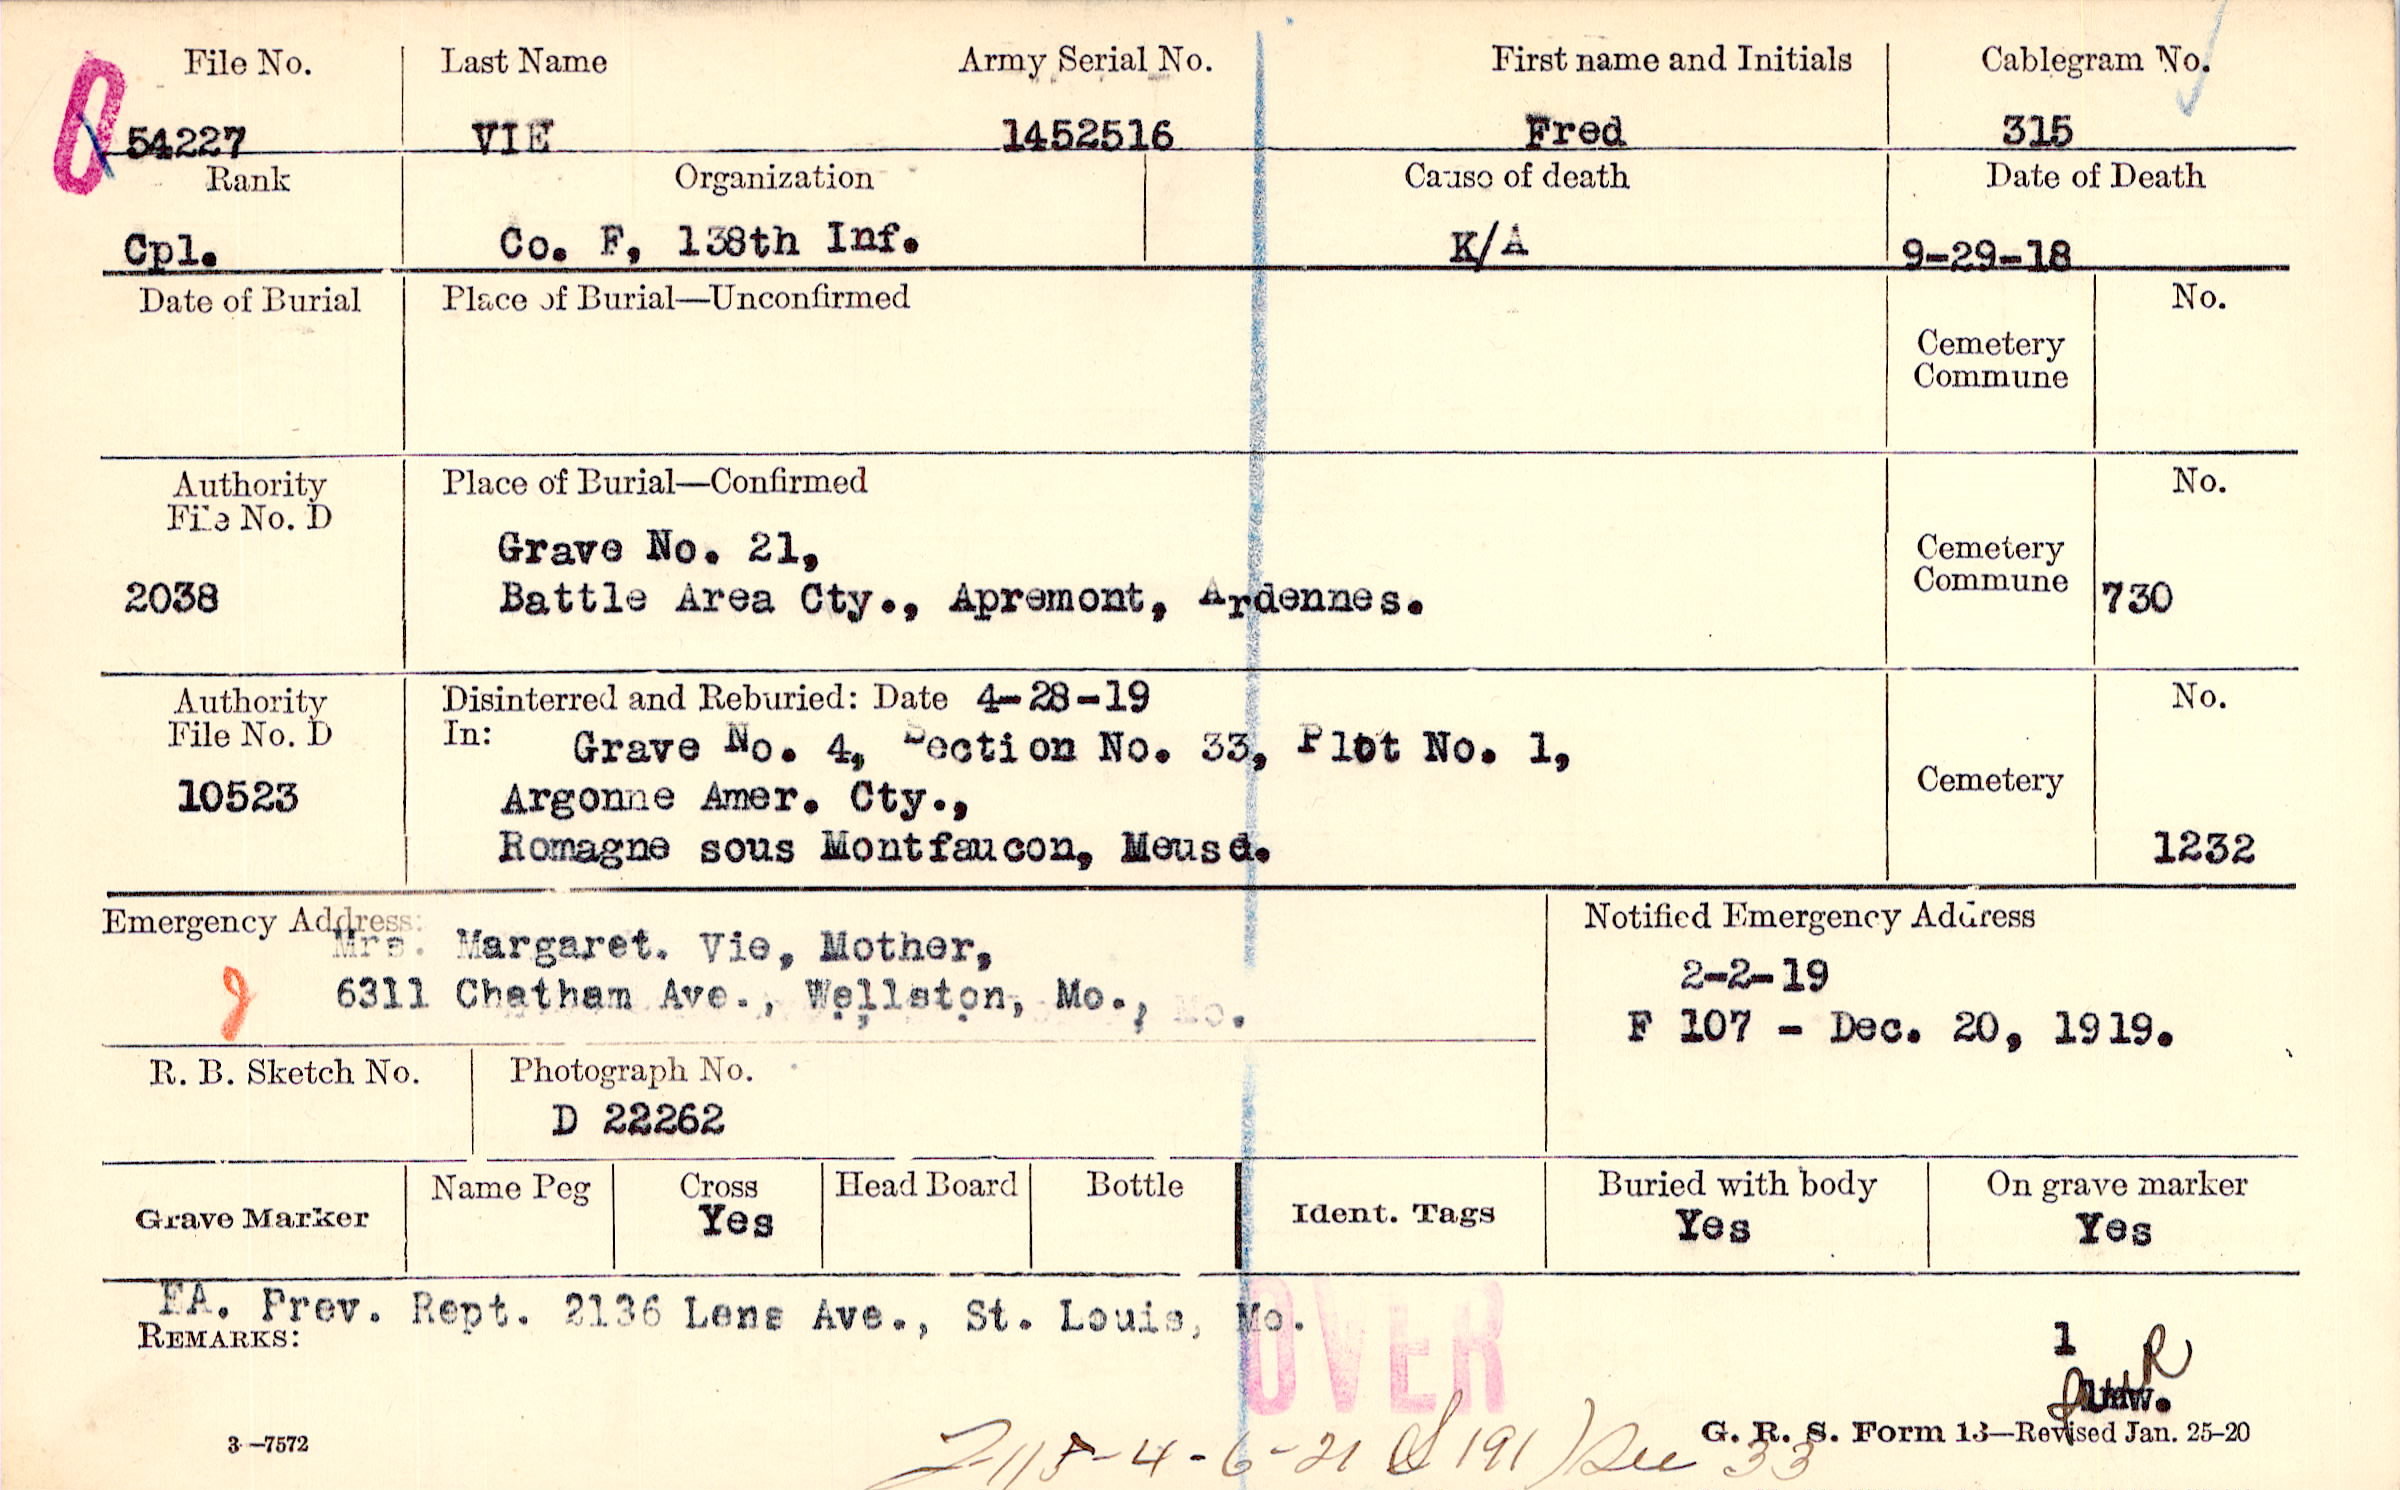 File No. Last Name Army Serial No. First name and Initials Cablegram No.
54227 VIE 1452516 Fred 315
Rank Organization Cause of death Date of Death
Cpl. Co. F, 138th Inf. K/A 9-29-18
Date of Burial Place of Burial—Unconfirmed No.
Cemetery
Commune
Authority Place of Burial—Confirmed No.
File No. D
Grave No. 21, Cemetery
2038 Battle Area Cty., Apremont, Ardennes. Commune 730
Authority Disinterred and Reburied: Date 4-28-19 No.
File No. D In: Grave No. 4, Section No. 33, Plot No. 1,
10523 Argonne Amer. Cty., Cemetery
Romagne sous Montfaucon, Meuse. 1232
Emergency Address: Notified Emergency Address
Mrs. Margaret. Vie, Mother, 2-2-19
6311 Chatham Ave., Wellston, Mo., Mo.
F 107 - Dec. 20, 1919.
R. B. Sketch No. Photograph No.
D 22262
Grave Marker Name Peg Cross Head Board Bottle Ident. Tags Buried with body On grave marker
Yes Yes Yes
EA. Prev. Rept. 2136 Lens Ave., St. Louis, Mo.
REMARKS: OVER 1
3—7572 G. R. S. Form 13—Revised Jan. 25-20
4-6-21 191 33